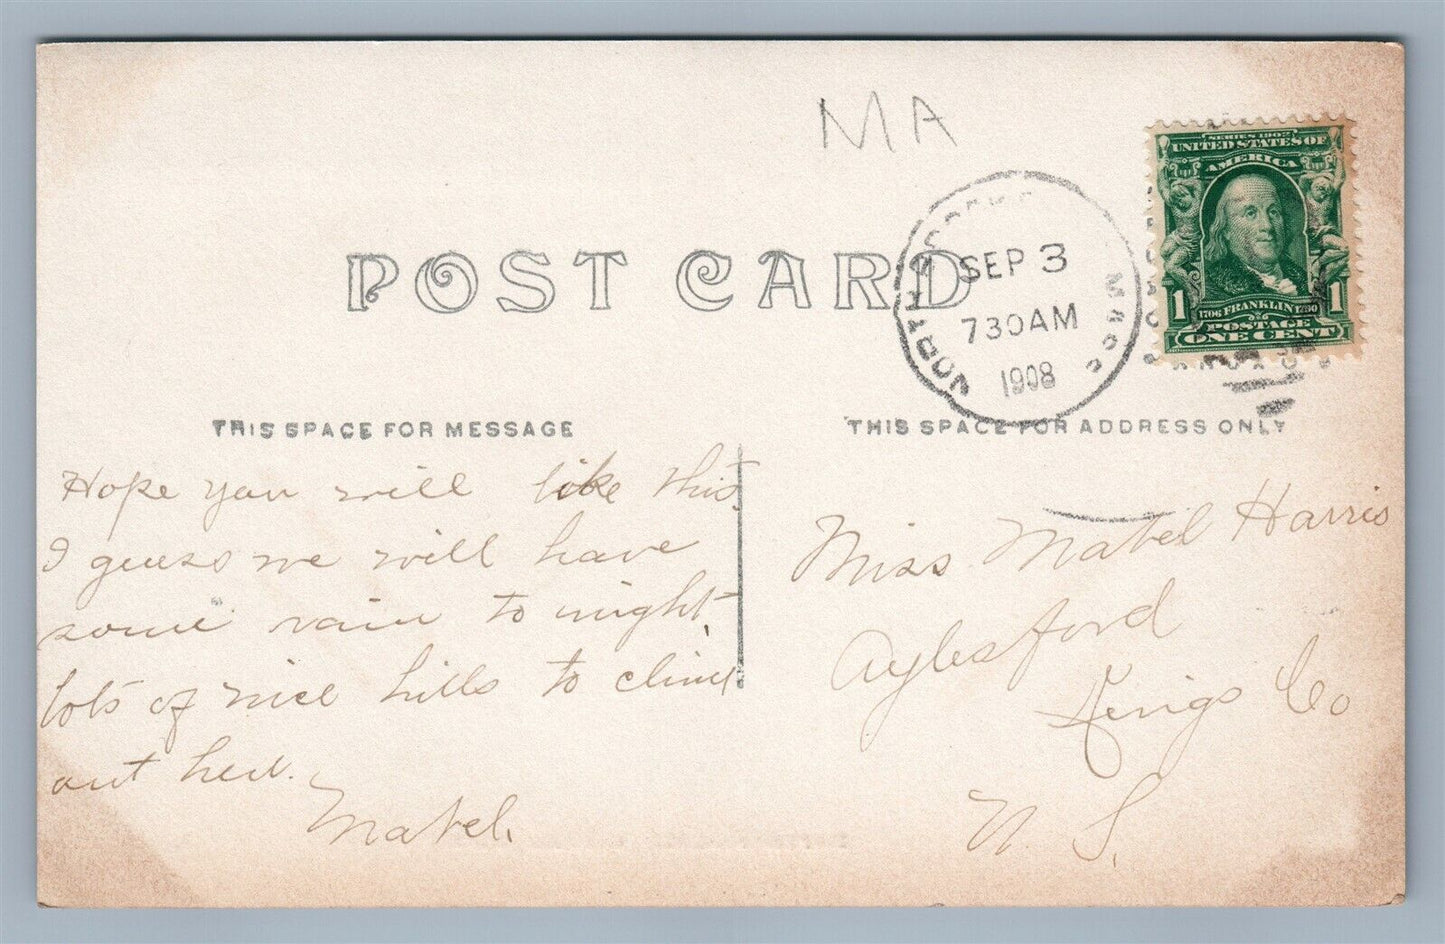 MA
SERIES 1902
UNITED STATES OF
AMERICA
1 1
1706 FRANKLIN 1790
POSTAGE
ONE CENT
SEP 3
730AM
1908
MASS
POST CARD
THIS SPACE FOR MESSAGE
THIS SPACE FOR ADDRESS ONLY
Hope you will like this,
I guess we will have
some rain to night,
lots of nice hills to climb
out her.
Mabel.
Miss Mabel Harris
Aylesford
Kings Co
N. S.